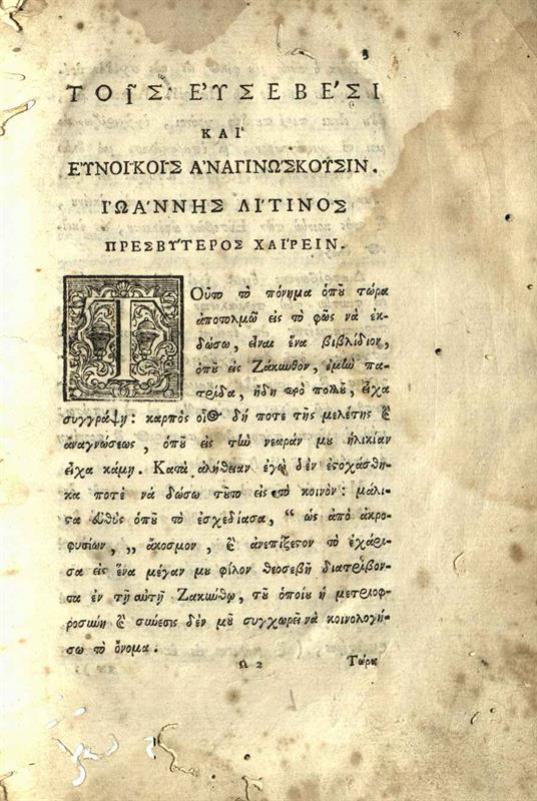 3
ΤΟΙ͂Σ ΕΥ̓ΣΕΒΕ΄ΣΙ
ΚΑΙ΄
ΕΥ̓ΝΟΙ΄ΚΟΙΣ ἈΝΑΓΙΝΩ΄ΣΚΟΥΣΙΝ.
ἸΩΑ΄ΝΝΗΣ ΛΙ΄ΤΙΝΟΣ
ΠΡΕΣΒΥ΄ΤΕΡΟΣ ΧΑΙ΄ΡΕΙΝ.
ΤΟῦτο τὸ πόνημα ὁπȣ͂ τώρα
ἀποτολμῶ εἰς τὸ φῶς νὰ ἐκ-
δώσω, εἶναι ἕνα βιβλίδιον,
ὁπȣ͂ εἰς Ζάκυνθον, ἐμὴν πα-
τρίδα, ἤδη πρὸ πολλȣ͂, εἶχα
συγγράψῃ: καρπὸς οἷος δή ποτε τῆς μελέτης ϗ
ἀναγνώσεως, ὁπȣ͂ εἰς τὴν νεαράν μȣ ἡλικίαν
εἶχα κάμῃ. Κατὰ ἀλήθειαν ἐγὼ δὲν ἐστοχάσθη-
κα ποτὲ νὰ δώσω τȣ͂το εἰς τὸ κοινὸν: μάλι-
στα εὐθὺς ὁπȣ͂ τὸ ἐσχεδίασα, “ ὡς ἀπὸ ἀκρο-
φυσίων, „ ἄκοσμον, ϗ ἀνεπίξεστον τὸ ἐχάρι-
σα εἰς ἕνα μέγαν μȣ φίλον θεοσεβῆ διατρίβον-
τα ἐν τῇ αὐτῇ Ζακύνθῳ, τȣ͂ ὁποίȣ ἡ μετριοφ-
ροσύνη ϗ σύνεσις δὲν μȣ͂ συγχωρεῖ νὰ κοινολογή-
σω τὸ ὄνομα.
Ω 2 Τώρα